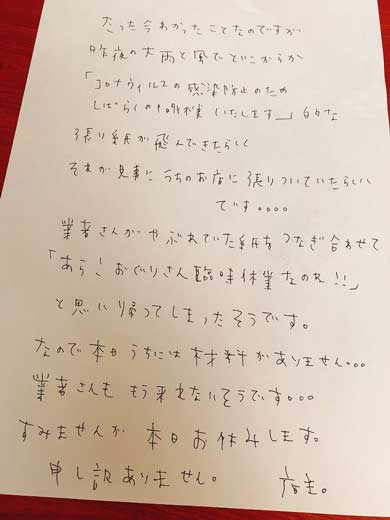 たった今わかったことなのですが
昨夜の大雨と風でどこからか
「コロナウィルスの感染防止のため
しばらくの間休業いたします__」的な
張り紙が飛んできたらしく
それが見事にうちのお店に張りついていたらしい
です。。。。
業者さんがやぶれていた紙をつなぎ合わせて
「あら！おぐりさん臨時休業なのね!!」
と思い帰ってしまったそうです。
なので本日うちには材料がありません。。。
業者さんも もう来れないそうです。。。
すみませんが 本日お休みします。
申し訳ありません。 店主。